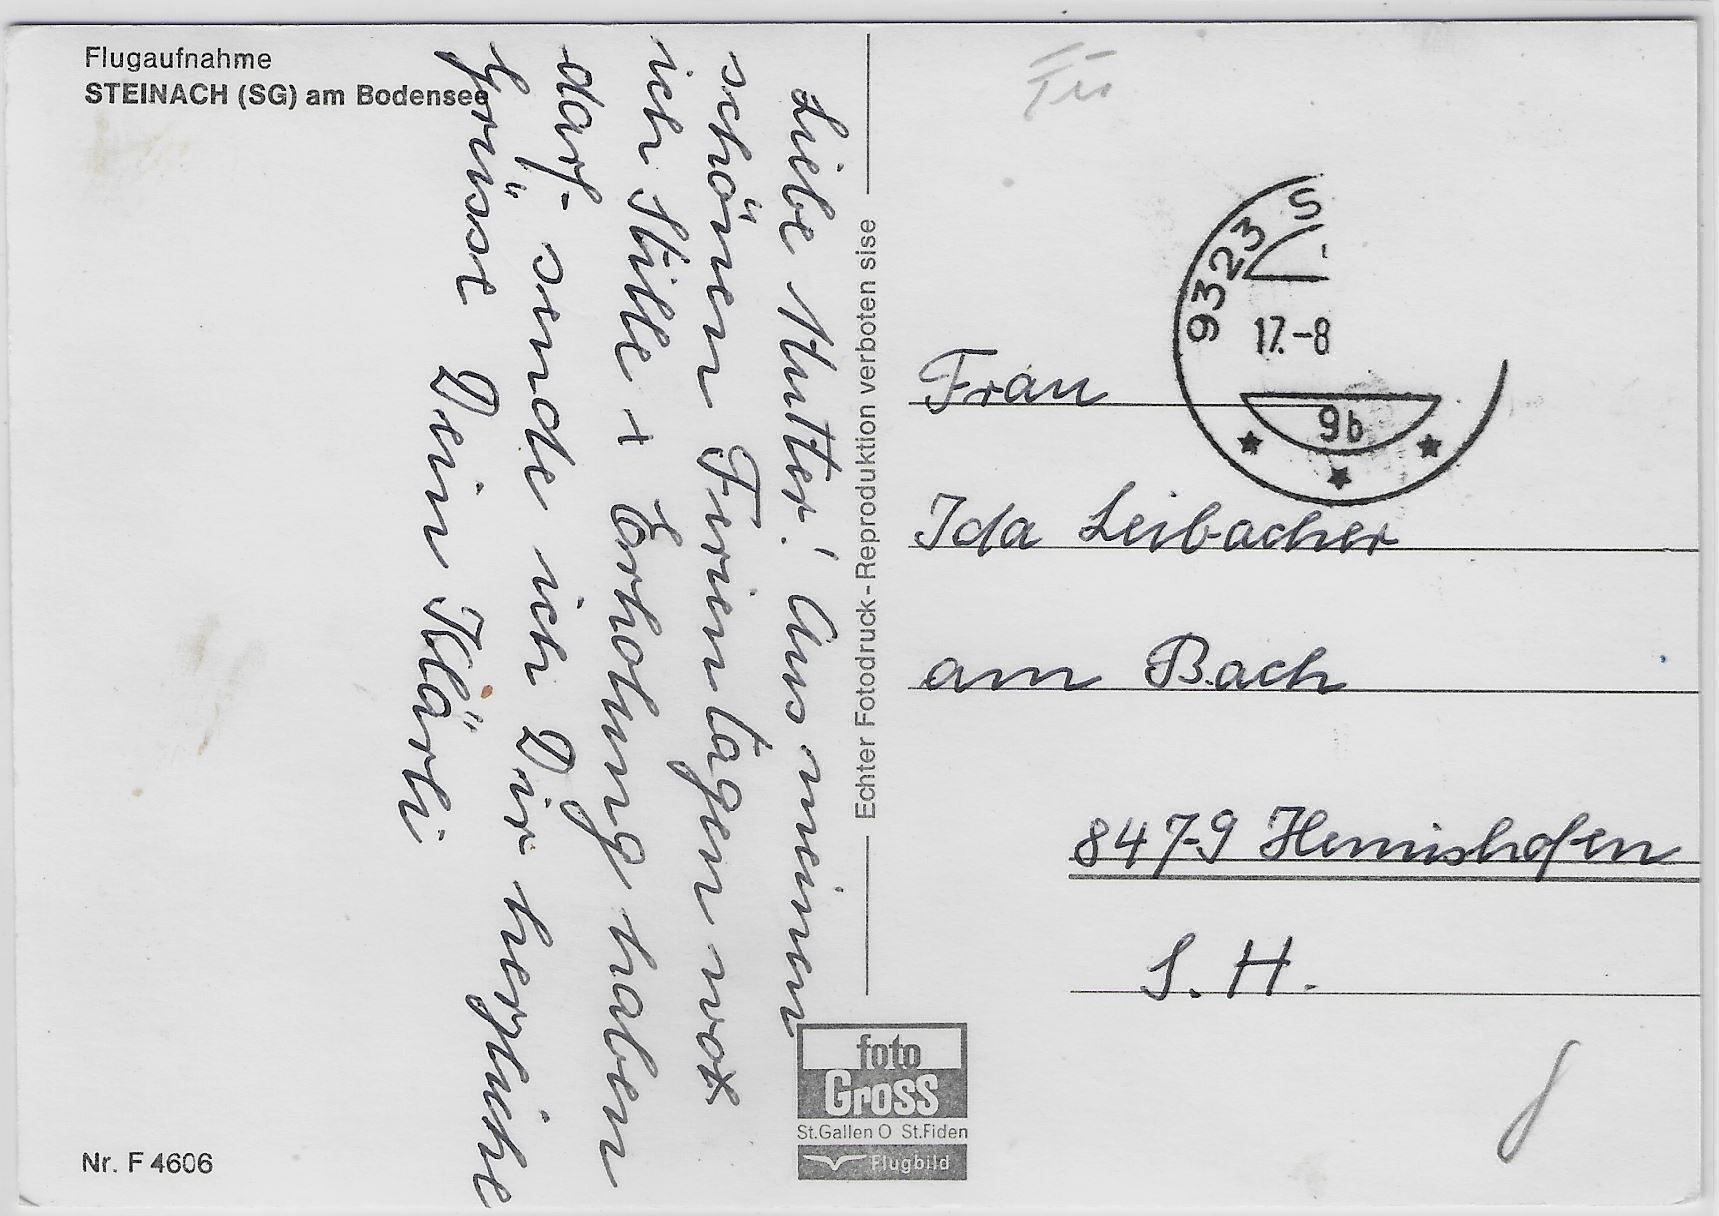 Flugaufnahme
STEINACH (SG) am Bodensee
Liebe Mutter! Aus meinen
schönen Ferientagen wo
ich Stille + Erholung haben
darf- sende ich Dir herzliche
Grüsse Dein Klärli
Echter Fotodruck - Reproduktion verboten sise
9323 S
17.-8
9b
Frau
Ida Leibacher
am Bach
8479 Hemishofen
S. H.
foto
Gross
St.Gallen O St.Fiden
Flugbild
Nr. F 4606